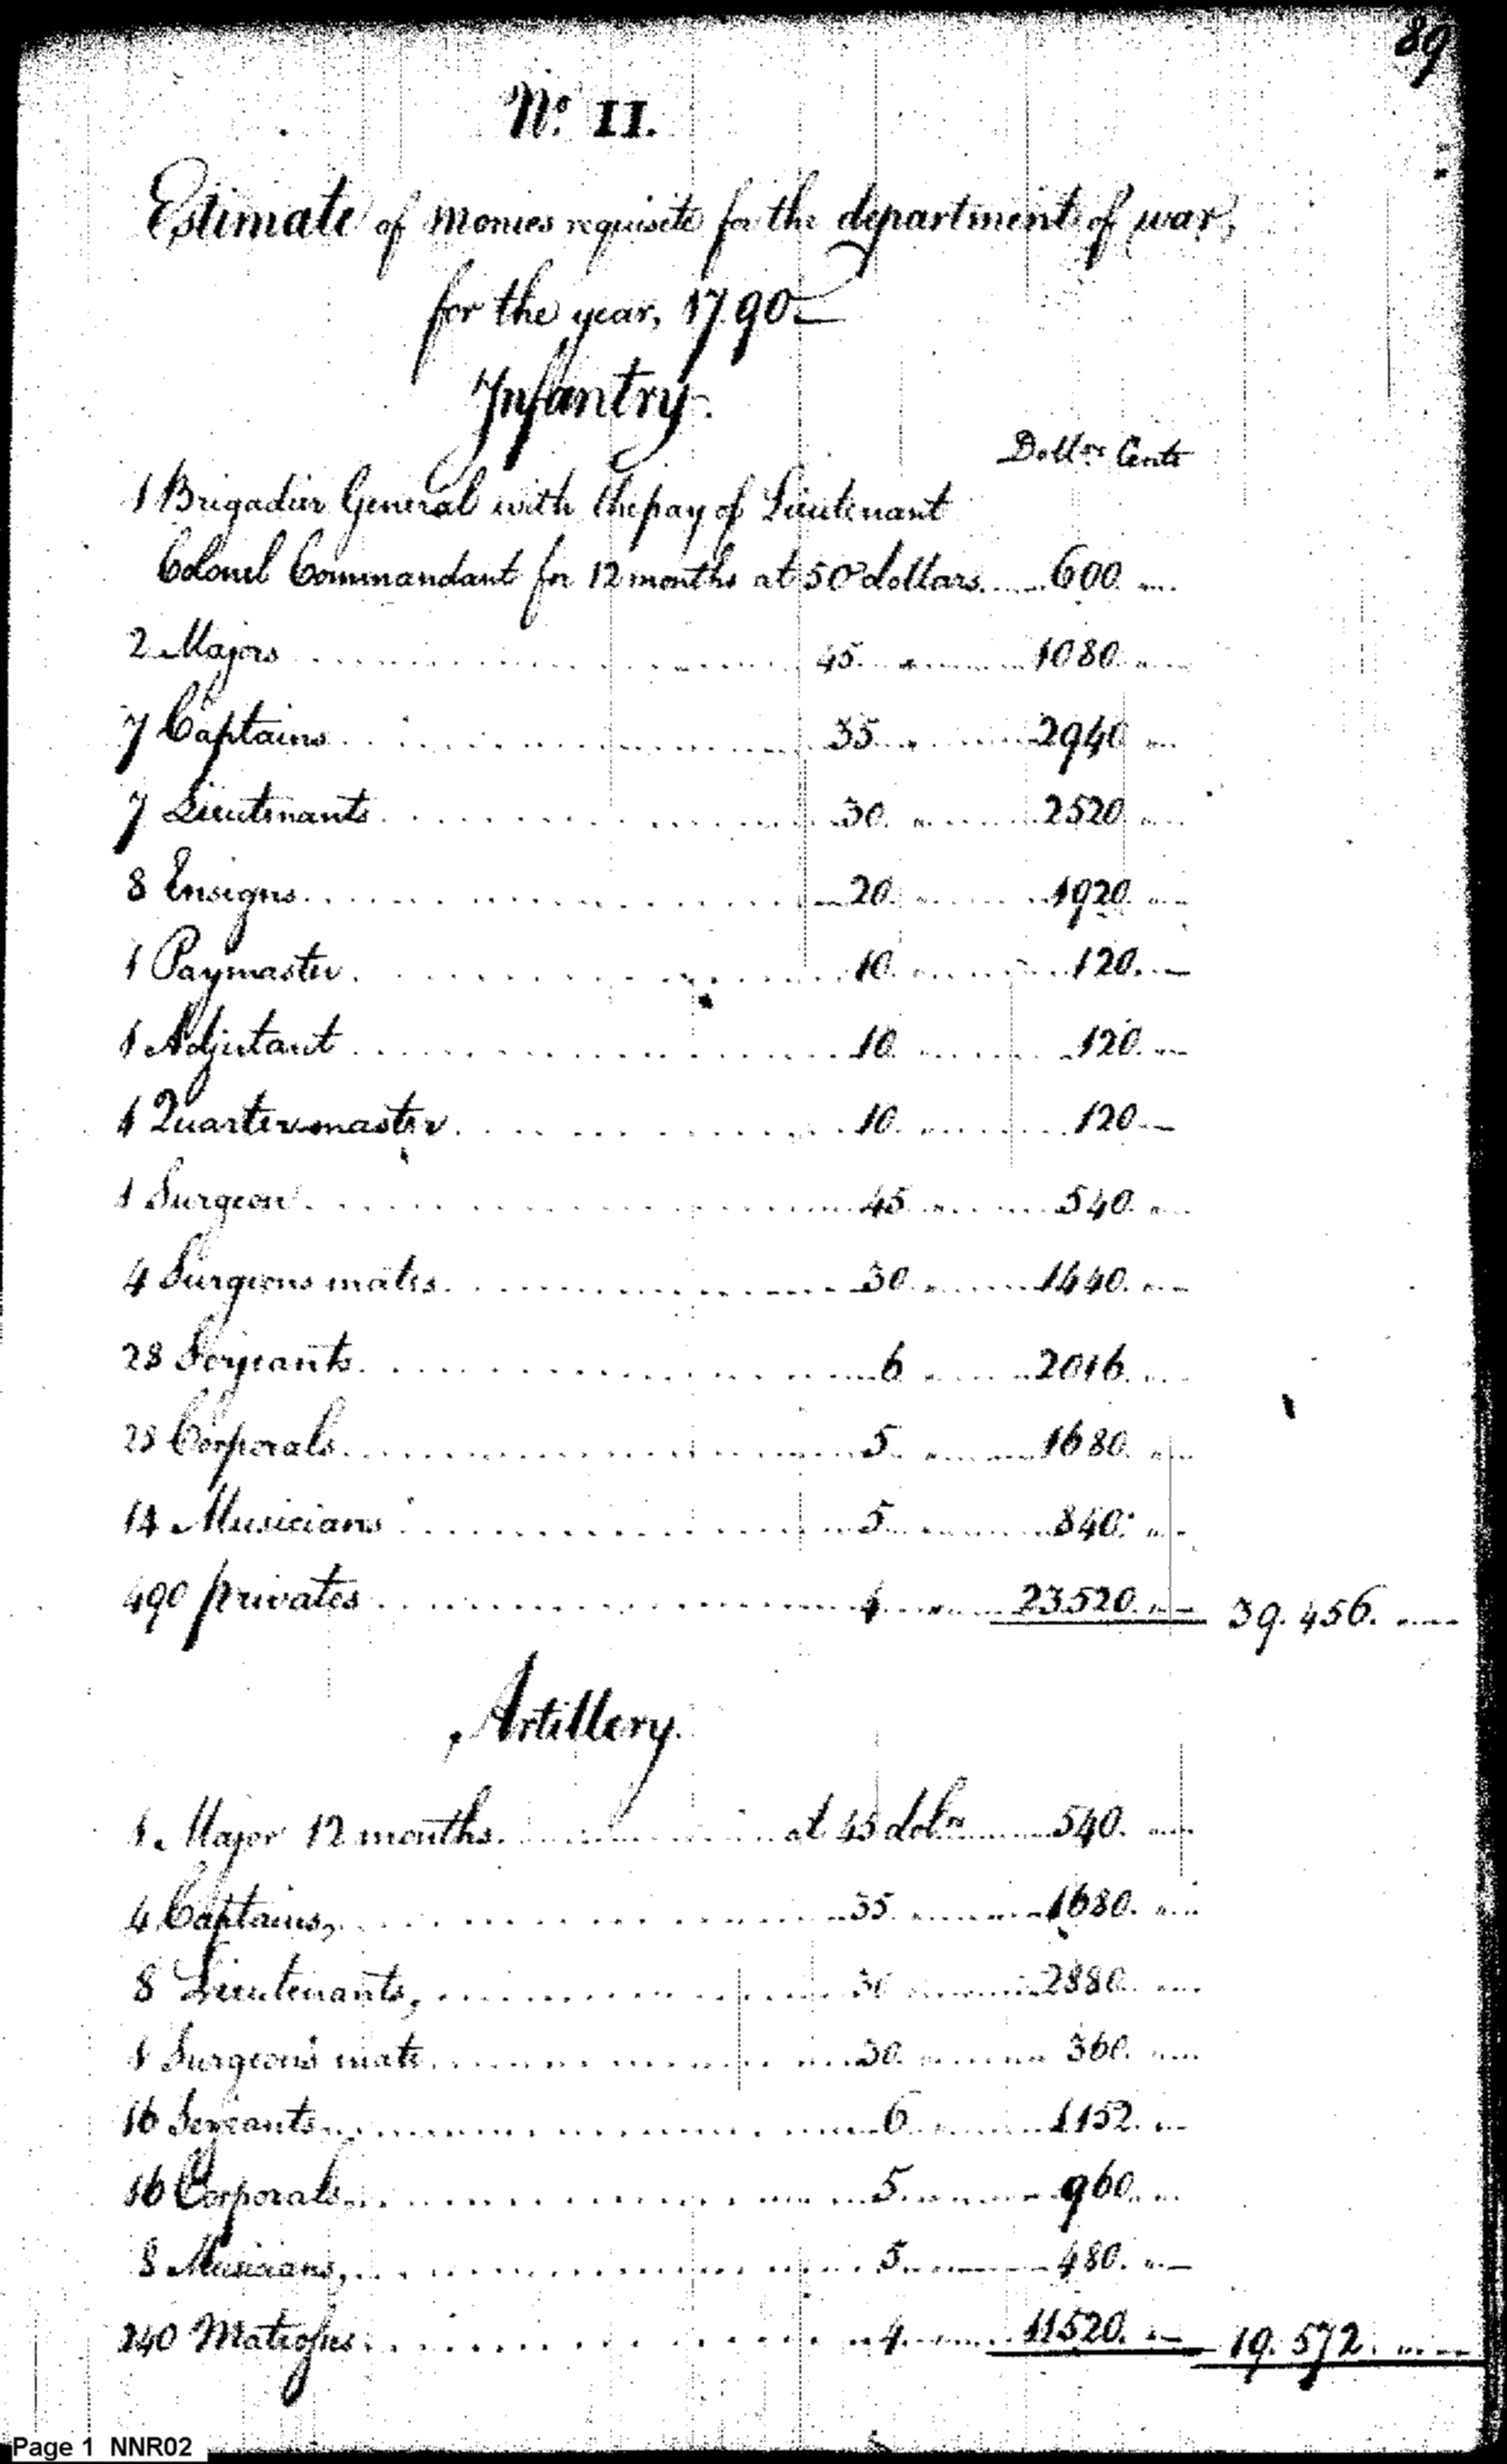 89
No. II.
Estimate of monies requisite for the department of war,
for the year, 1790.
Infantry.
Dollrs Cents
1 Brigadier General with the pay of Lieutenant
Colonel Commandant for 12 months at 50 dollars 600
2 Majors 45 1080
7 Captains 35 2940
7 Lieutenants 30 2520
8 Ensigns 20 1920
1 Paymaster 10 120
1 Adjutant 10 120
1 Quartermaster 10 120
1 Surgeon 45 540
4 Surgeons mates 30 1440
28 Serjeants 6 2016
28 Corporals 5 1680
14 Musicians 5 840
490 privates 4 23520 39.456
Artillery.
1 Major 12 months at 45 dolrs 540
4 Captains, 35 1680
8 Lieutenants, 30 2880
1 Surgeon's mate 30 360
16 Serjeants 6 1152
16 Corporals 5 960
8 Musicians, 5 480
240 Matrosses 4 11520 19.572
Page 1 NNR02